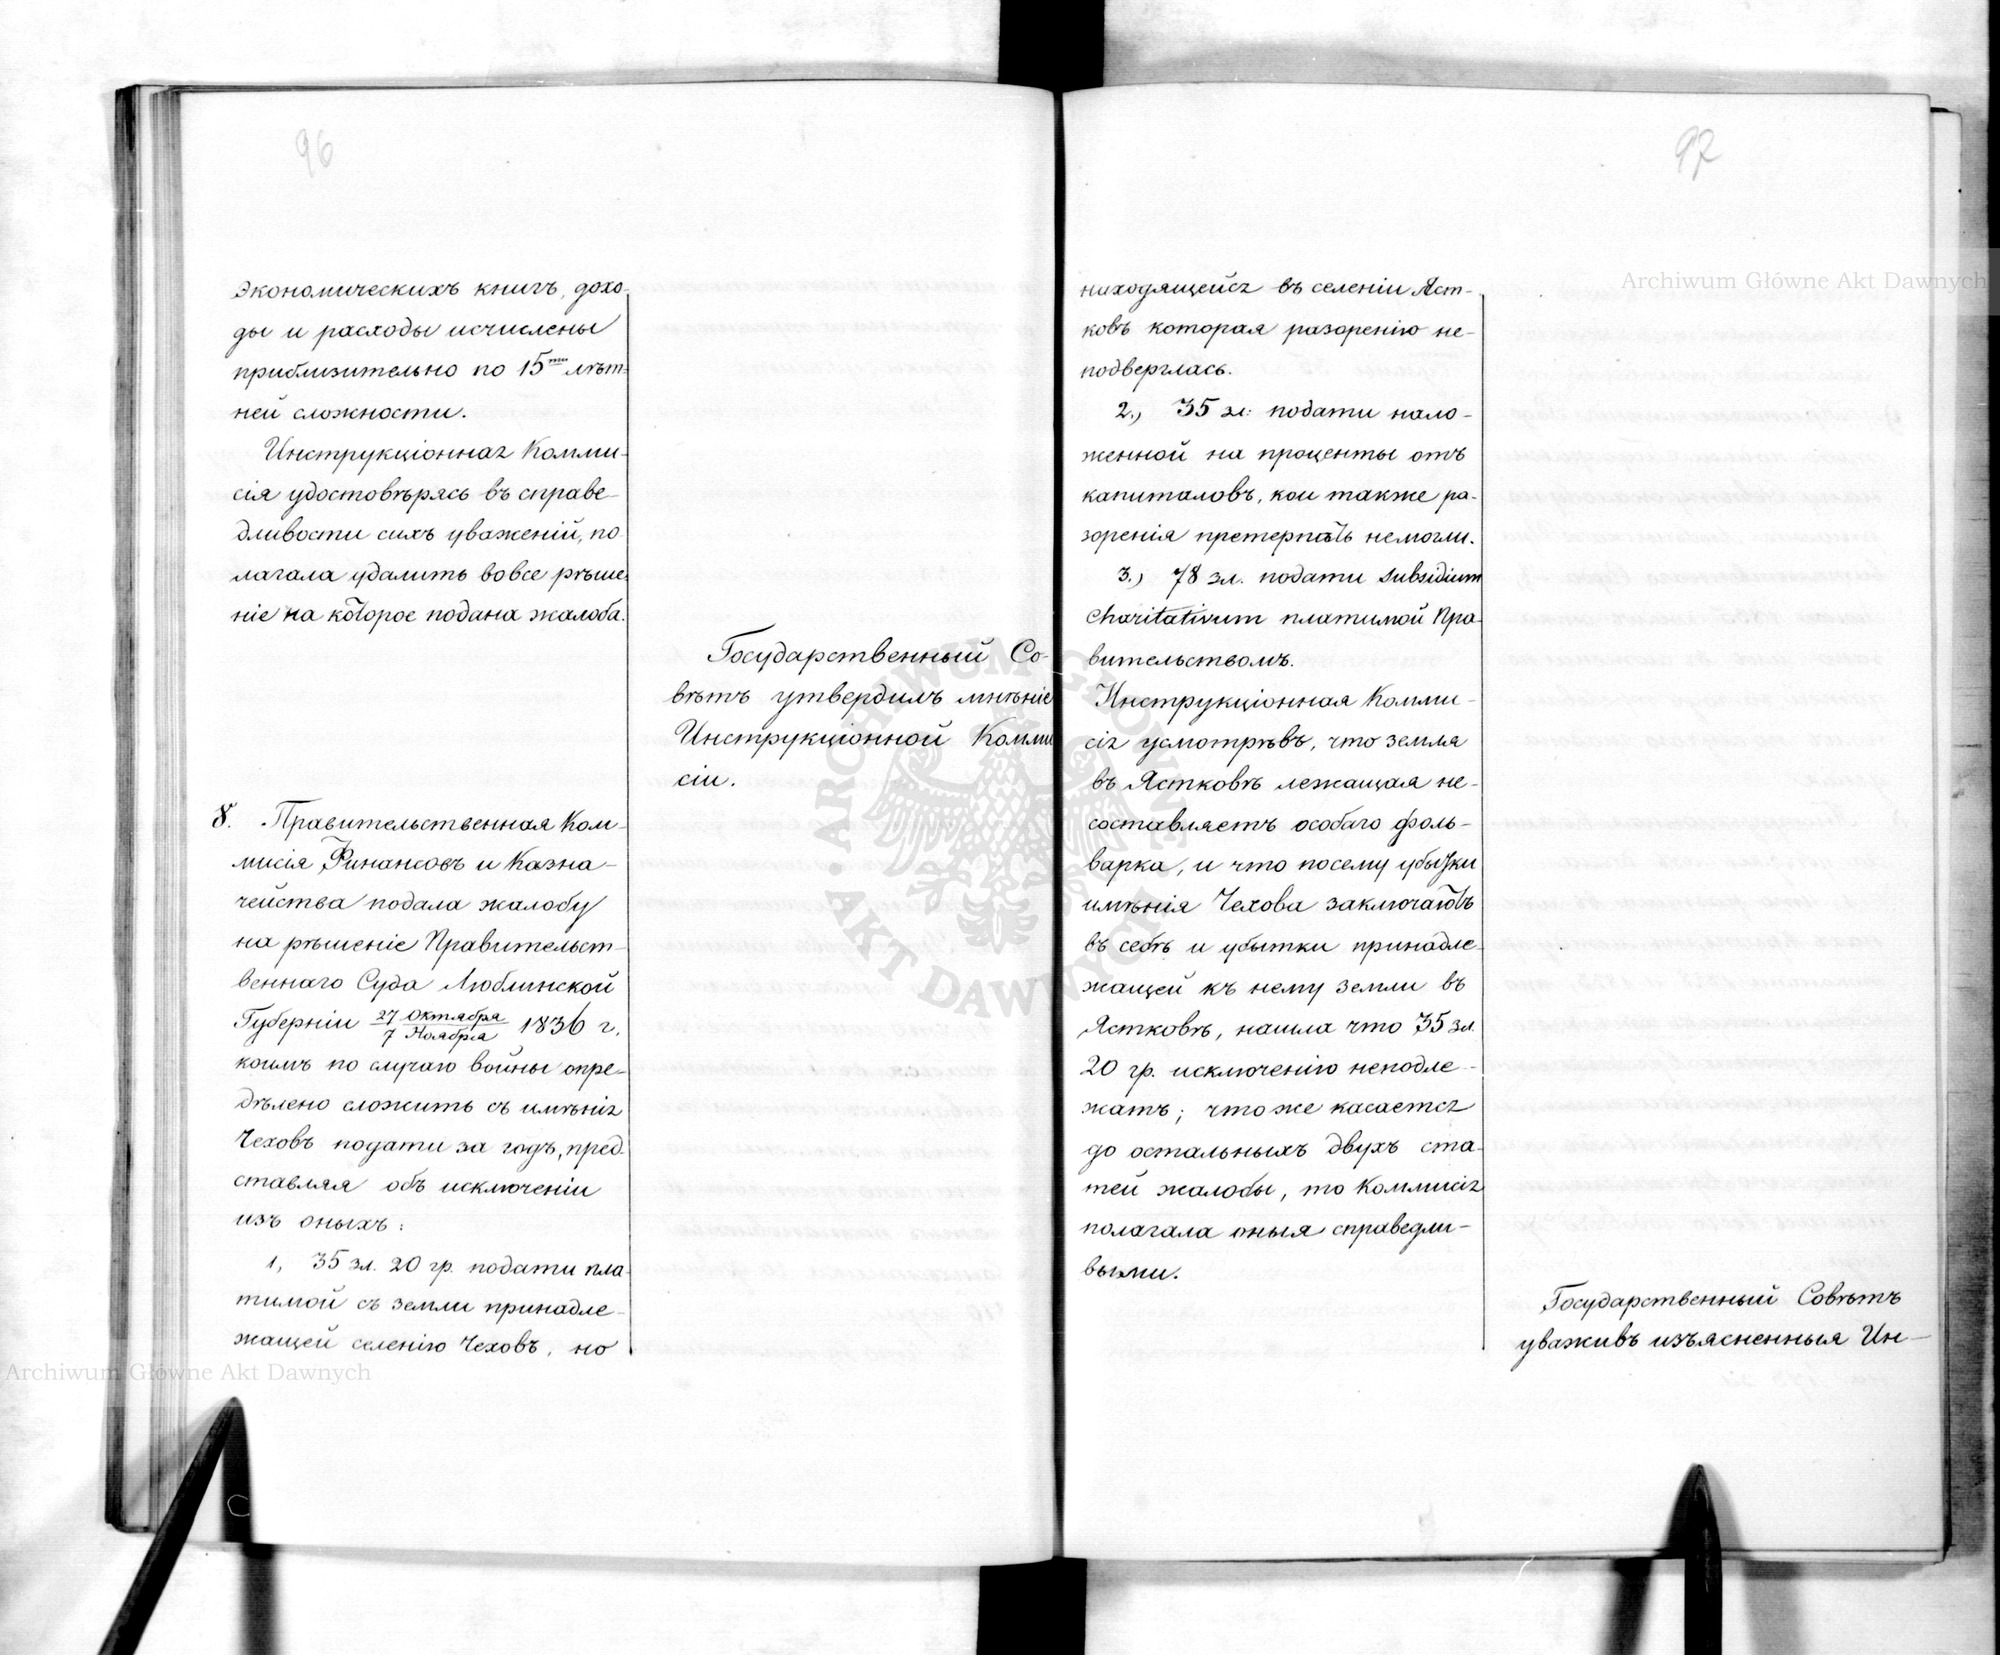 96
экономическихъ книгъ, дохо-
ды и расходы исчислены
приблизительно по 15ти лѣт-
ней сложности.
Инструкціонная Комми-
сія удостовѣрясь въ справе-
дливости сихъ уваженій, по-
лагала удалить вовсе рѣше-
ніе на которое подана жалоба.
Государственный Со-
вѣтъ утвердилъ мнѣніе
Инструкціонной Комми
сіи.
8. Правительственная Ком-
мисія Финансовъ и Казна-
чейства подала жалобу
на рѣшеніе Правительст-
веннаго Суда Люблинской
Губерніи 27 Октября / 7 Ноября 1836 г.
коимъ по случаю войны опре-
дѣлено сложить съ имѣнія
Чеховъ подати за годъ, пред-
ставляя объ исключеніи
изъ оныхъ:
1, 35 зл. 20 гр. подати пла-
тимой съ земли принадле-
жащей селенію Чеховъ, но
97
находящейся въ селеніи Яст-
ковъ которая разоренію не-
подверглась.
2., 35 зл: подати нало-
женной на проценты отъ
капиталовъ, кои также ра-
зоренія претерпѣть немогли.
3., 78 зл. подати subsidium
charitativum платимой Пра-
вительствомъ.
Инструкціонная Комми-
сія усмотрѣвъ, что земля
въ Ястковѣ лежащая не-
составляетъ особаго фоль-
варка, и что посему убытки
имѣнія Чехова заключаютъ
въ себѣ и убытки принадле-
жащей къ нему земли въ
Ястковѣ, нашла что 35 зл.
20 гр. исключенію неподле-
жатъ; что же касается
до остальныхъ двухъ ста-
тей жалобы, то Коммисія
полагала оныя справедли-
выми.
Государственный Совѣтъ
уваживъ изъясненныя Ин-
Archiwum Główne Akt Dawnych
Archiwum Główne Akt Dawnych
ARCHIWUM GŁÓWNE AKT DAWNYCH